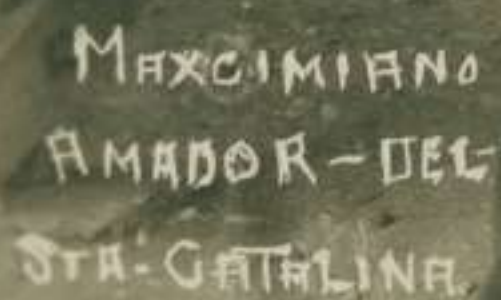 MAXCIMIANO
AMADOR-DEL-
STA-CATALINA.